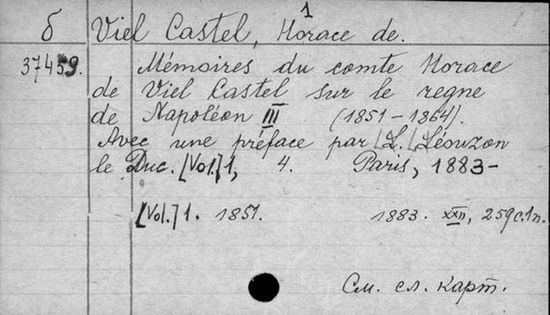 1
б Viel Castel, Horace de.
37459. Mémoires du comte Horace
de Viel Castel sur le regne
de Napoléon III (1851-1864).
Avec une préface par [L. [Léouzon
le Duc. [Vol.] 1, 4. Paris, 1883-
[Vol.] 1. 1851. 1883. XXII, 259 с. 1 п.
См. сл. карт.